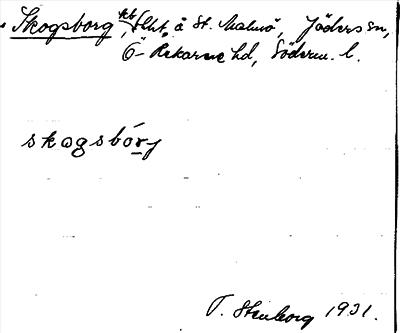 Skogsborg, kb, f. lht, å St. Malmö, Jäders sn,
Ö-Rekarne hd, Söderm. l.
skogsbórj
T. Stenborg 1931.